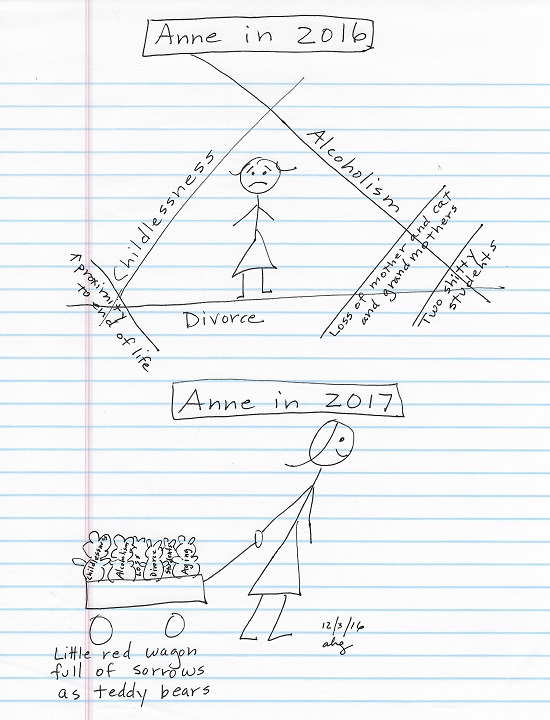 Anne in 2016
Childlessness
Alcoholism
Loss of mother and cat
and grandmothers
Two shitty
students
↑ proximity
to end of life
Divorce
Anne in 2017
Childlessness
Alcoholism
Loss
Divorce
Students
Aging
12/3/16
ahg
Little red wagon
full of sorrows
as teddy bears